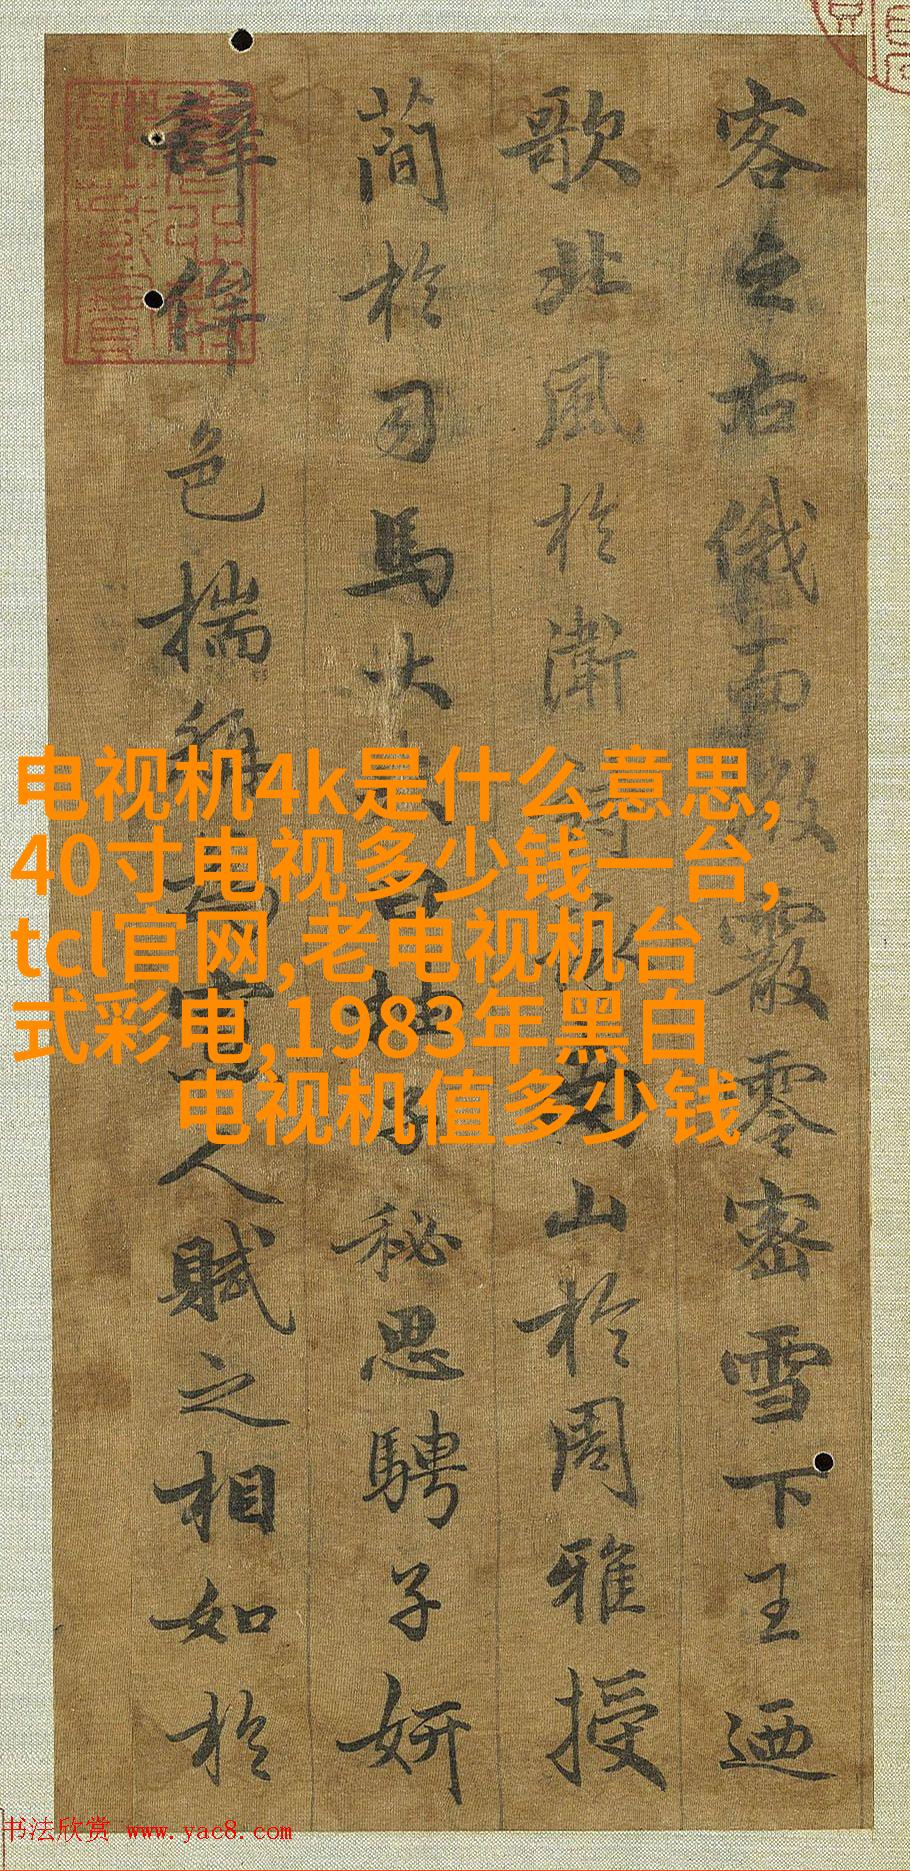 客之右俄而微霰零密雪下王迺
歌北風於衛詩山於周雅授
蕳於司馬大夫曰抽子秘思騁子妍
辭侔色揣稱為人賦之相如於
电视机4k是什么意思,
40寸电视多少钱一台,
tcl官网,老电视机台
式彩电,1983年黑白
电视机值多少钱
书法欣赏 www.yac8.com